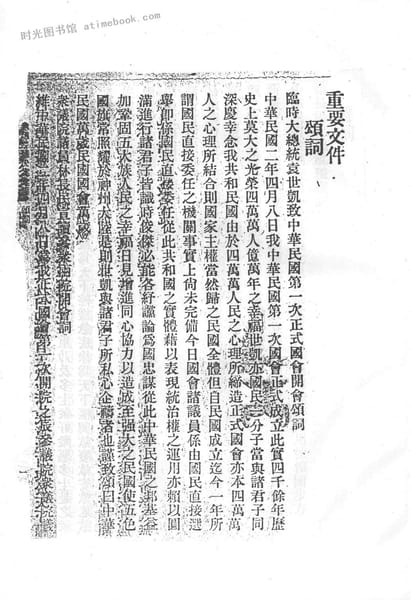 时光图书馆 atimebook.com
重要文件
頌詞
臨時大總統袁世凱致中華民國第一次正式國會開會頌詞
中華民國二年四月八日我中華民國第一次國會正式成立此實四千餘年歷
史上莫大之光榮四萬萬人億萬年之幸福世凱亦國民一分子當與諸君子同
深慶幸念我共和民國由於四萬萬人民之心理所締造正式國會亦本四萬萬
人之心理所結合則國家主權當然歸之民國全體但自民國成立迄今一年所
謂國民直接委任之機關事實上尚未完備今日國會諸議員係由國民直接選
舉卽係國民直接委任從此共和國之實體藉以表現統治權之運用亦賴以圓
滿進行諸君子皆識時俊傑必能各紓讜論爲國忠謀從此中華民國之邦基益
加鞏固五大族人民之幸福日見增進同心協力以造成至强大之民國使五色
國旗常照耀於神州大陸是則世凱與諸君子所私心企禱者也謹致頌曰中華
民國萬歲民國國會萬歲
衆議院議員林長民
開會詞